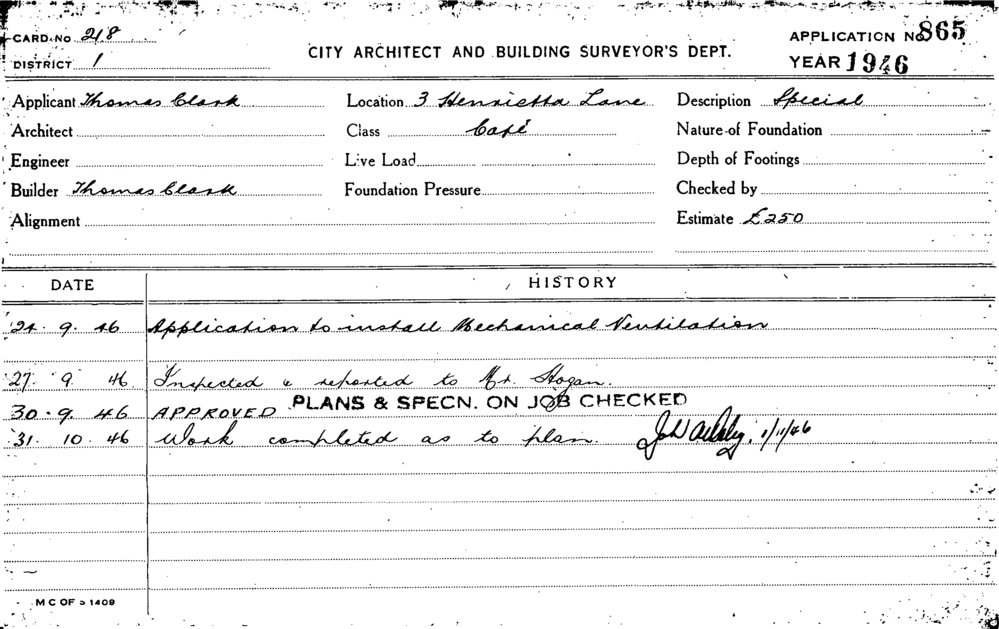 CARD No 218
DISTRICT 1
CITY ARCHITECT AND BUILDING SURVEYOR'S DEPT.
APPLICATION No 865
YEAR 1946
Applicant Thomas Clark Location 3 Henrietta Lane Description Special
Architect Class Café Nature of Foundation
Engineer Live Load Depth of Footings
Builder Thomas Clark Foundation Pressure Checked by
Alignment Estimate £250
DATE HISTORY
24. 9. 46 Application to install Mechanical Ventilation
27. 9. 46 Inspected & reported to Mr. Hogan.
PLANS & SPECN. ON JOB CHECKED
30. 9. 46 APPROVED
31. 10. 46 Work completed as to plan. 1/11/46
M C OF 1409